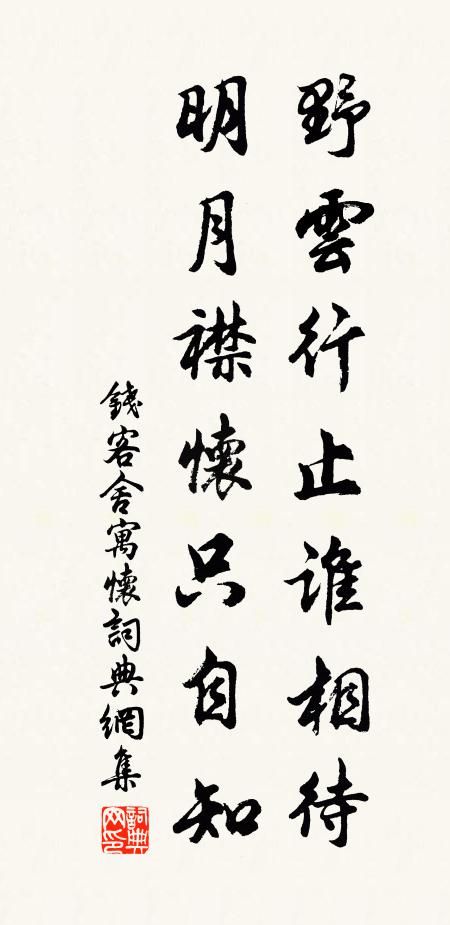 野雲行止誰相待
明月襟懷只自知
錢客舍寓懷詞典網集
詞典网印